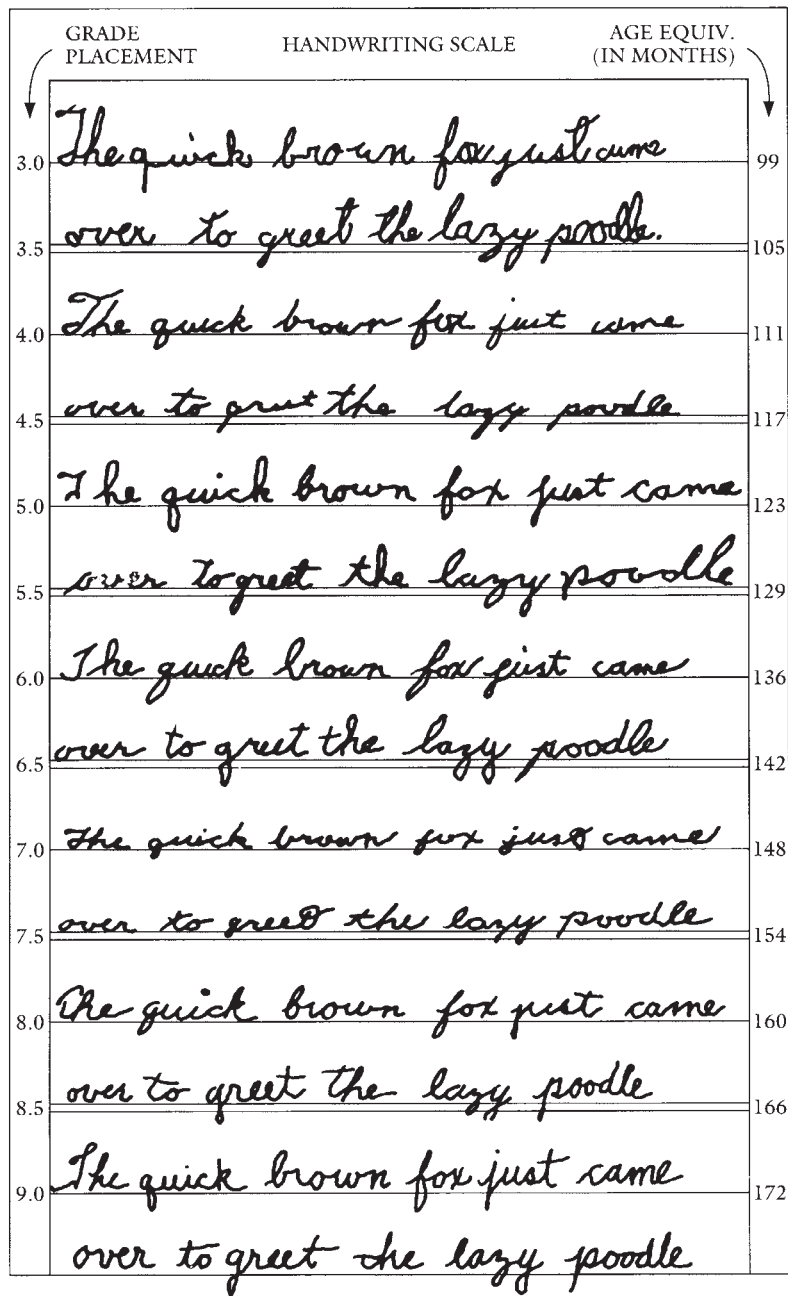 GRADE PLACEMENT HANDWRITING SCALE AGE EQUIV. (IN MONTHS)
3.0 The quick brown fox just came 99
over to greet the lazy poodle.
3.5 105
4.0 The quick brown fox just came 111
over to greet the lazy poodle
4.5 117
5.0 The quick brown fox just came 123
over to greet the lazy poodle
5.5 129
6.0 The quick brown fox just came 136
over to greet the lazy poodle
6.5 142
7.0 The quick brown fox just came 148
over to greet the lazy poodle
7.5 154
8.0 The quick brown fox just came 160
over to greet the lazy poodle
8.5 166
9.0 The quick brown fox just came 172
over to greet the lazy poodle